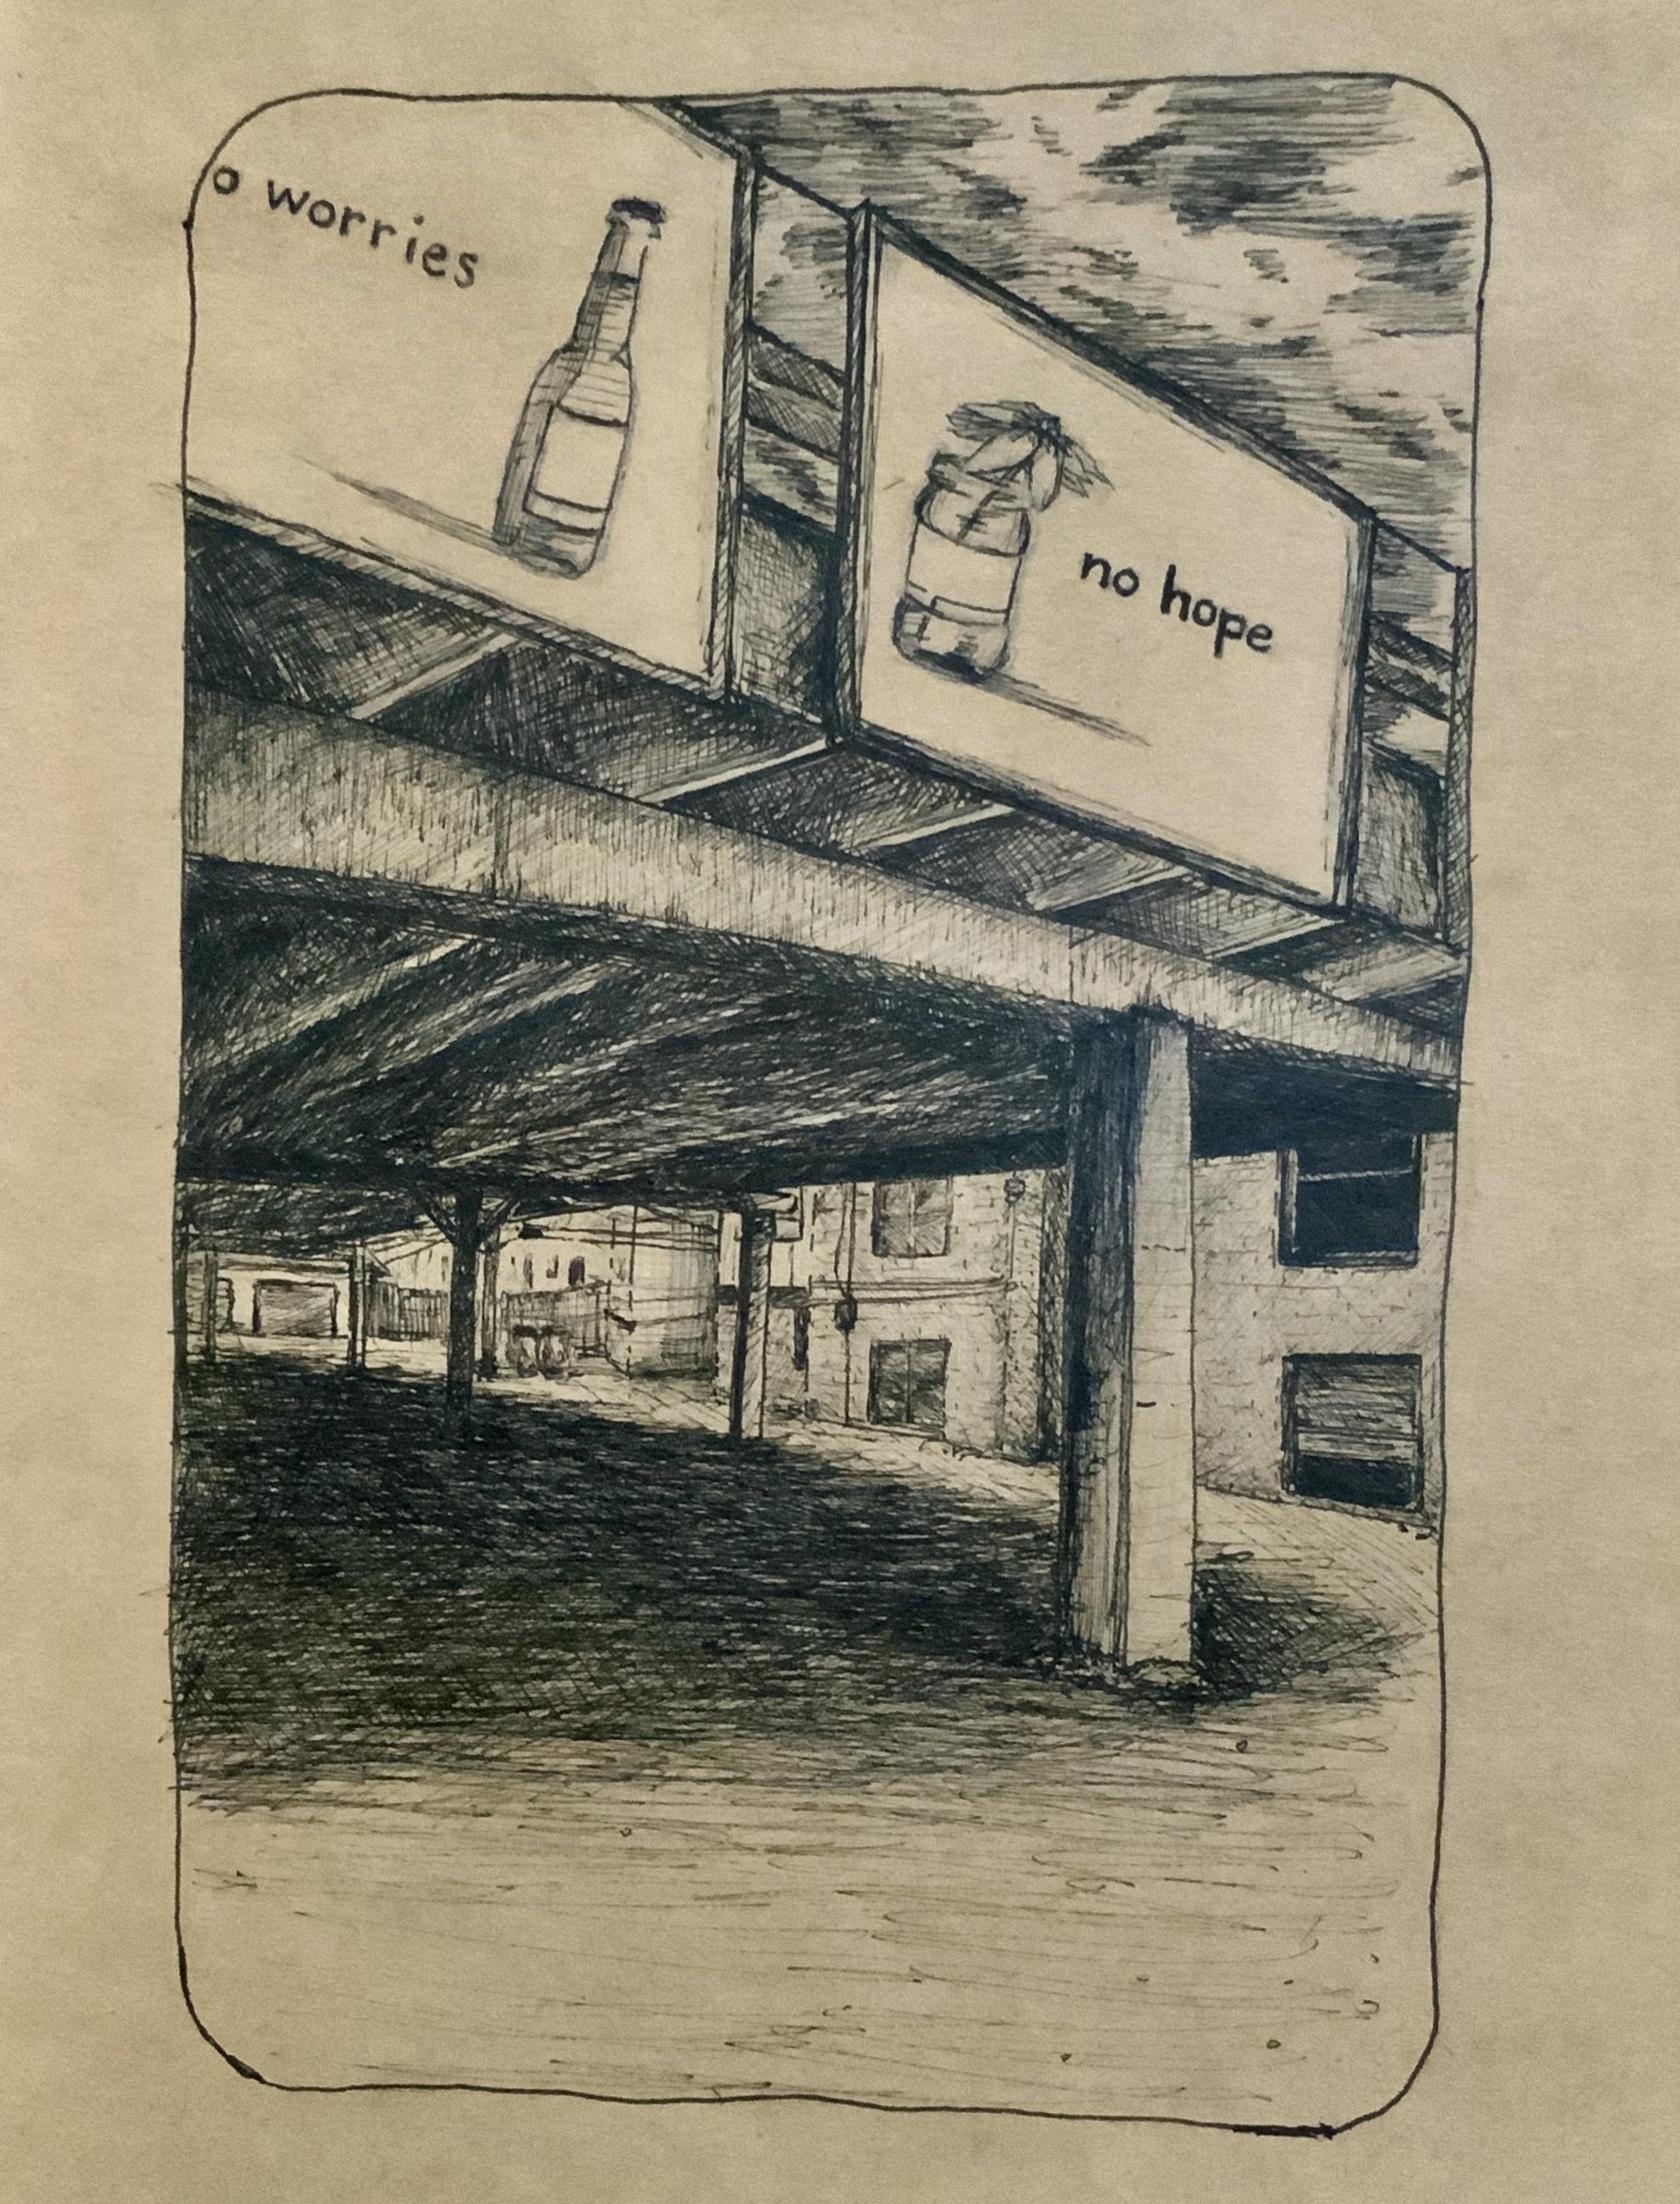 o worries
no hope